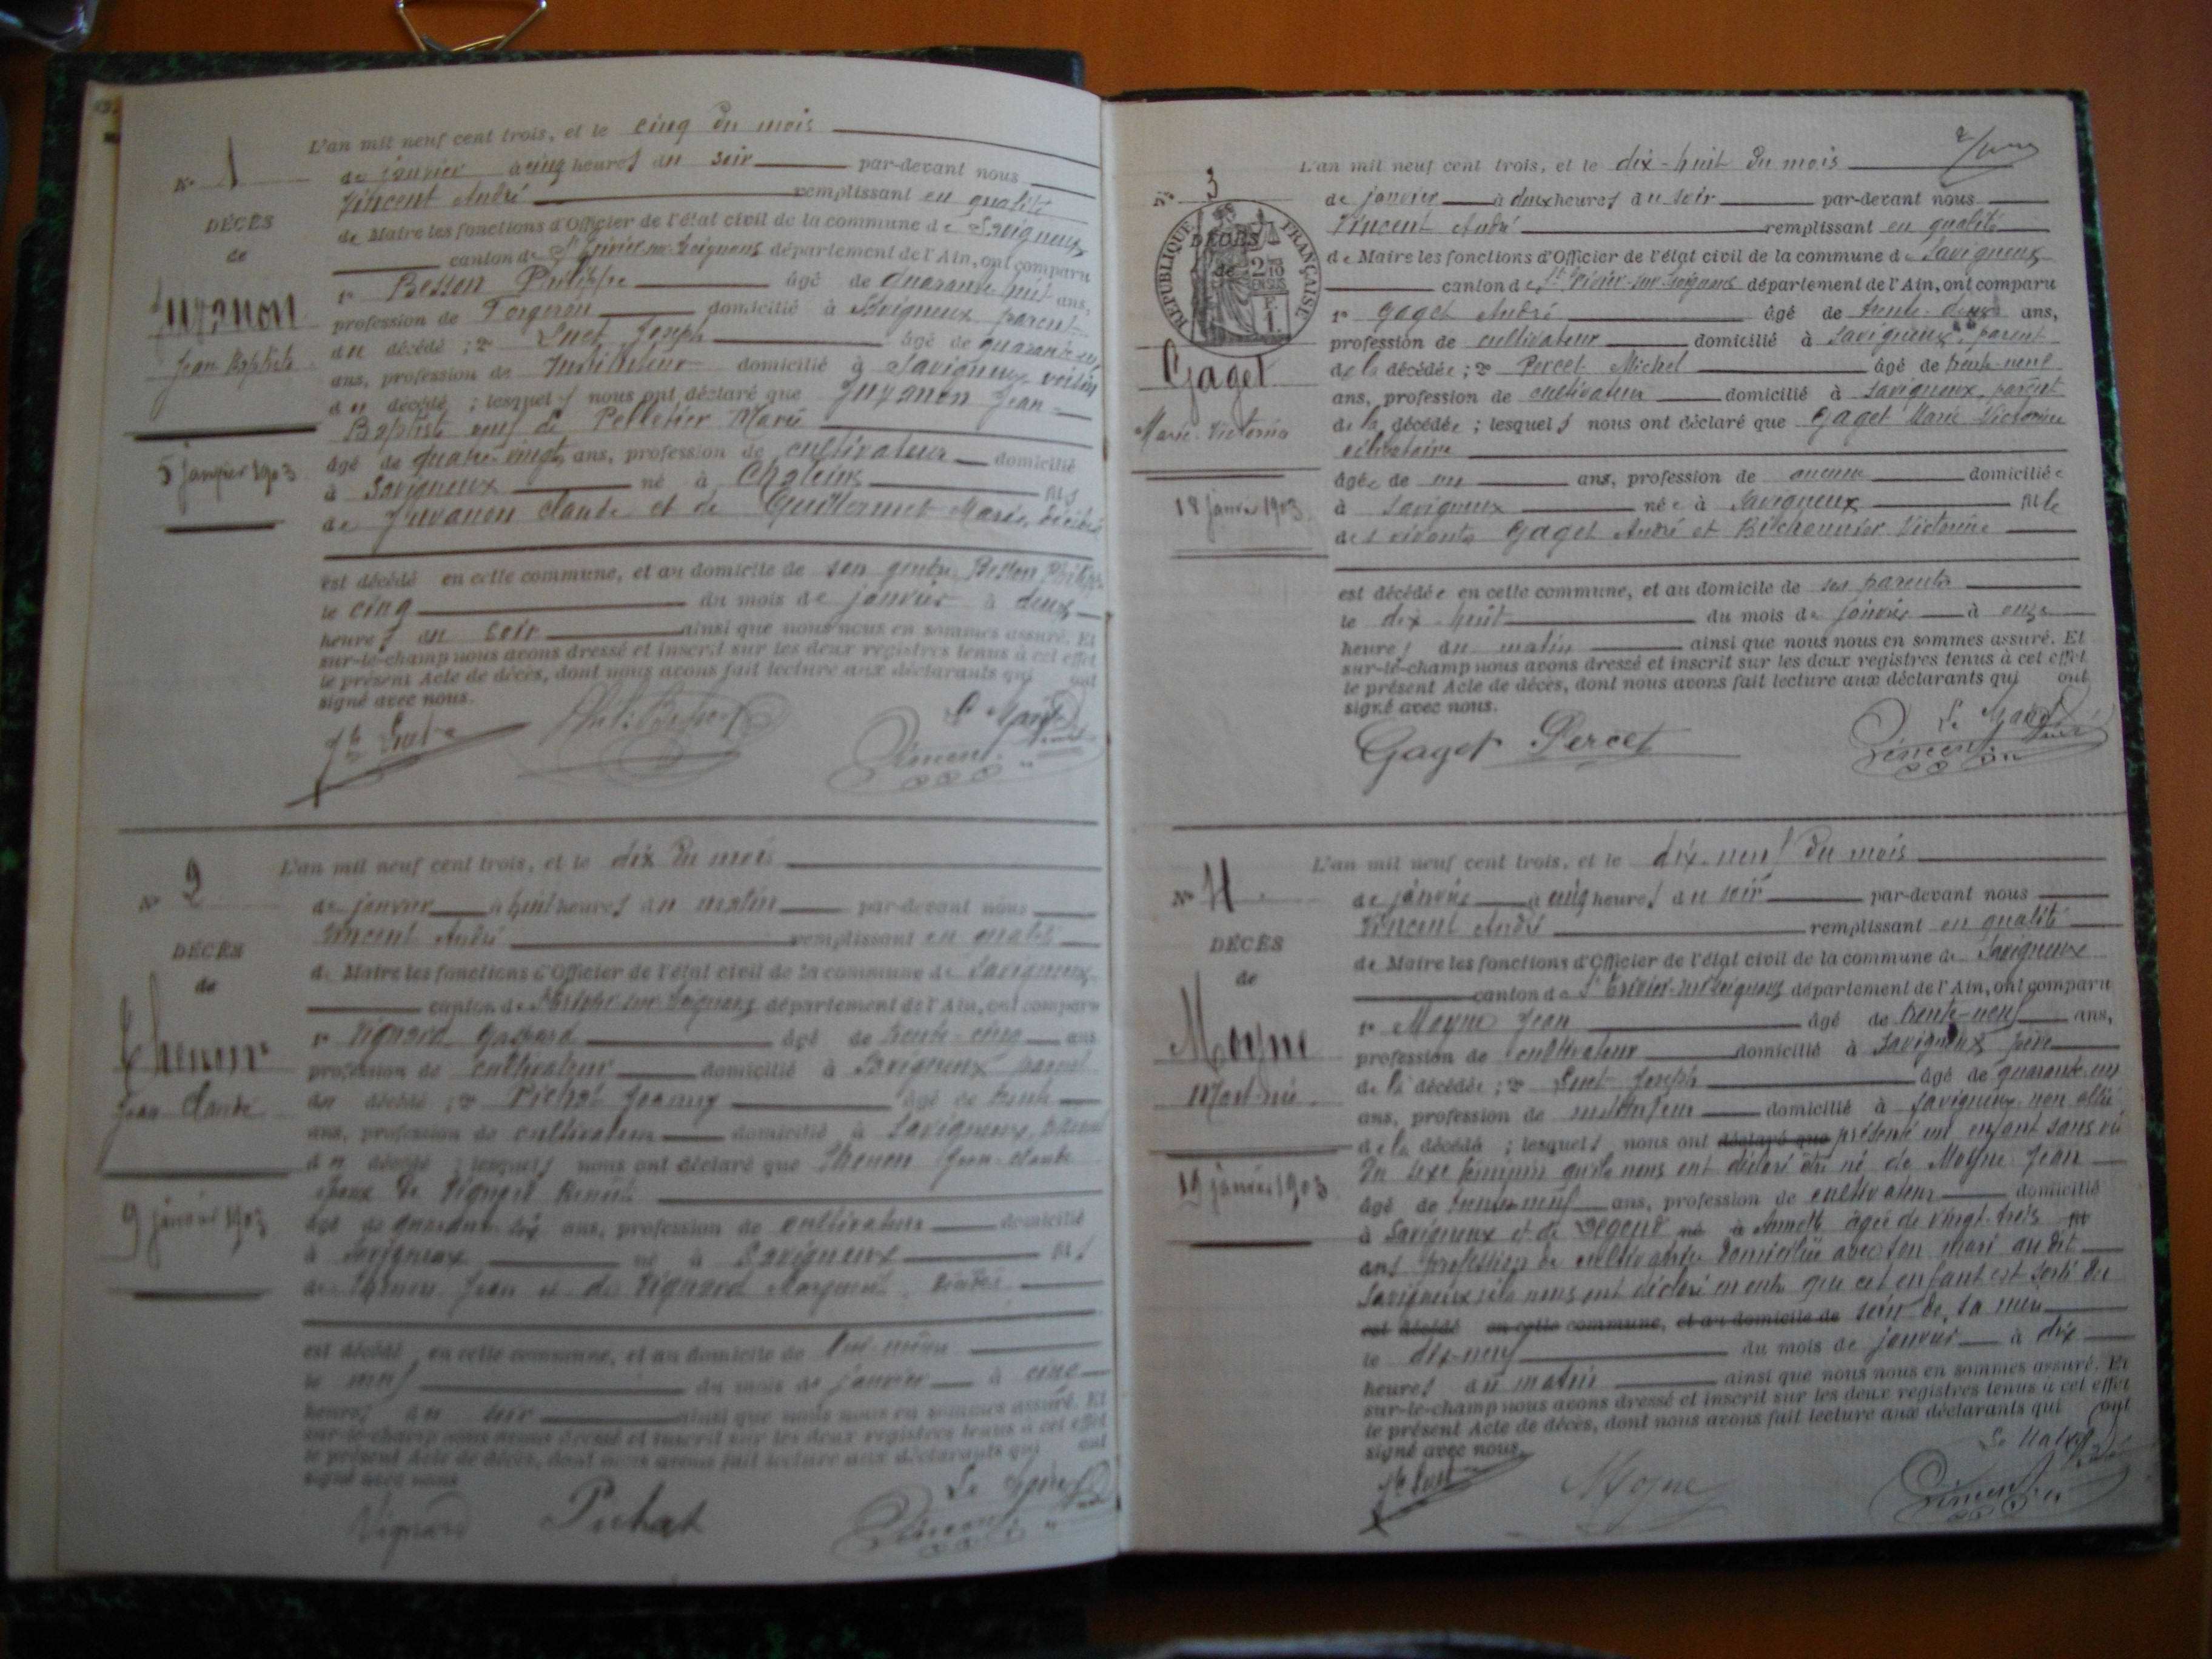 L'an mil neuf cent trois, et le cinq du mois
N° 1
de janvier à cinq heures du soir par-devant nous
Vincent André remplissant en qualité
DÉCÈS
de Maire les fonctions d'Officier de l'état civil de la commune de Savigneux
de
canton de St Trivier-sur-Moignans département de l'Ain, ont comparu
Juvanon
1° Besson Philippe âgé de quarante-huit ans,
profession de Forgeron domicilié à Savigneux parent
Jean Baptiste
du décédé ; 2° Suet Joseph âgé de quarante un
ans, profession de Instituteur domicilié à Savigneux voisin
du décédé ; lesquels nous ont déclaré que Juvanon Jean-
Baptiste veuf de Pelletier Marie
5 janvier 1903
âgé de quatre vingts ans, profession de cultivateur domicilié
à Savigneux né à Chaleins fils
de Juvanon Claude et de Guillermet Marie, décédés
est décédé en cette commune, et au domicile de son gendre Besson Philippe
le cinq du mois de janvier à deux
heures du soir ainsi que nous nous en sommes assuré. Et
sur-le-champ nous avons dressé et inscrit sur les deux registres tenus à cet effet
le présent Acte de décès, dont nous avons fait lecture aux déclarants qui ont
signé avec nous.
Jh Suet Phil. Besson Le Maire
Vincent
L'an mil neuf cent trois, et le dix du mois
N° 2
de janvier à huit heures du matin par-devant nous
Vincent André remplissant en qualité
DÉCÈS
de Maire les fonctions d'Officier de l'état civil de la commune de Savigneux
de
canton de St Trivier-sur-Moignans département de l'Ain, ont comparu
Thenon
1° Vignard Gaspard âgé de trente-cinq ans
profession de cultivateur domicilié à Savigneux parent
Jean Claude
du décédé ; 2° Pichat Joanny âgé de trente
ans, profession de cultivateur domicilié à Savigneux, parent
du décédé ; lesquels nous ont déclaré que Thenon Jean-Claude
époux de Vignard Benoite
9 janvier 1903
âgé de quarante six ans, profession de cultivateur domicilié
à Savigneux né à Savigneux fils
de Thenon Jean et de Vignard Marguerite, décédés
est décédé en cette commune, et au domicile de lui-même
le neuf du mois de janvier à cinq
heures du soir ainsi que nous nous en sommes assuré. Et
sur-le-champ nous avons dressé et inscrit sur les deux registres tenus à cet effet
le présent Acte de décès, dont nous avons fait lecture aux déclarants qui ont
signé avec nous
Vignard Pichat Le Maire
Vincent
L'an mil neuf cent trois, et le dix-huit du mois
N° 3
de janvier à deux heures du soir par-devant nous
Vincent André remplissant en qualité
RÉPUBLIQUE FRANÇAISE
DÉCÈS
de
2/10 EN SUS
F. 1.
de Maire les fonctions d'Officier de l'état civil de la commune de Savigneux
canton de St Trivier-sur-Moignans département de l'Ain, ont comparu
1° Gaget André âgé de trente-deux ans,
profession de cultivateur domicilié à Savigneux, parent
Gaget
de la décédée ; 2° Percet Michel âgé de trente-neuf
ans, profession de cultivateur domicilié à Savigneux, parent
Marie-Victorine
de la décédée ; lesquels nous ont déclaré que Gaget Marie Victorine
célibataire
âgée de un ans, profession de aucune domiciliée
18 janvier 1903
à Savigneux née à Savigneux fille
des vivants Gaget André et Victorine
est décédée en cette commune, et au domicile de ses parents
le dix-huit du mois de janvier à onze
heures du matin ainsi que nous nous en sommes assuré. Et
sur-le-champ nous avons dressé et inscrit sur les deux registres tenus à cet effet
le présent Acte de décès, dont nous avons fait lecture aux déclarants qui ont
signé avec nous.
Gaget Percet Le Maire
Vincent
L'an mil neuf cent trois, et le dix-neuf du mois
N° 4
de janvier à cinq heures du soir par-devant nous
Vincent André remplissant en qualité
DÉCÈS
de Maire les fonctions d'Officier de l'état civil de la commune de Savigneux
de
canton de St Trivier-sur-Moignans département de l'Ain, ont comparu
Moyne
1° Moyne Jean âgé de trente-neuf ans,
profession de cultivateur domicilié à Savigneux père
Mort-née
de la décédée ; 2° Suet Joseph âgé de quarante un
ans, profession de instituteur domicilié à Savigneux non allié
de la décédé ; lesquels nous ont déclaré que présenté un enfant sans vie
du sexe féminin qu'ils nous ont déclaré être né de Moyne Jean
19 janvier 1903
âgé de trente-neuf ans, profession de cultivateur domicilié
à Savigneux et de né à âgée de vingt-trois fil
ans profession de cultivatrice domiciliée avec son mari au dit
Savigneux ils nous ont déclaré en outre que cet enfant est sorti du
est décédé en cette commune, et au domicile de sein de sa mère
le dix-neuf du mois de janvier à dix
heures du matin ainsi que nous nous en sommes assuré. Et
sur-le-champ nous avons dressé et inscrit sur les deux registres tenus à cet effet
le présent Acte de décès, dont nous avons fait lecture aux déclarants qui ont
signé avec nous.
Jh Suet Moyne Le Maire
Vincent